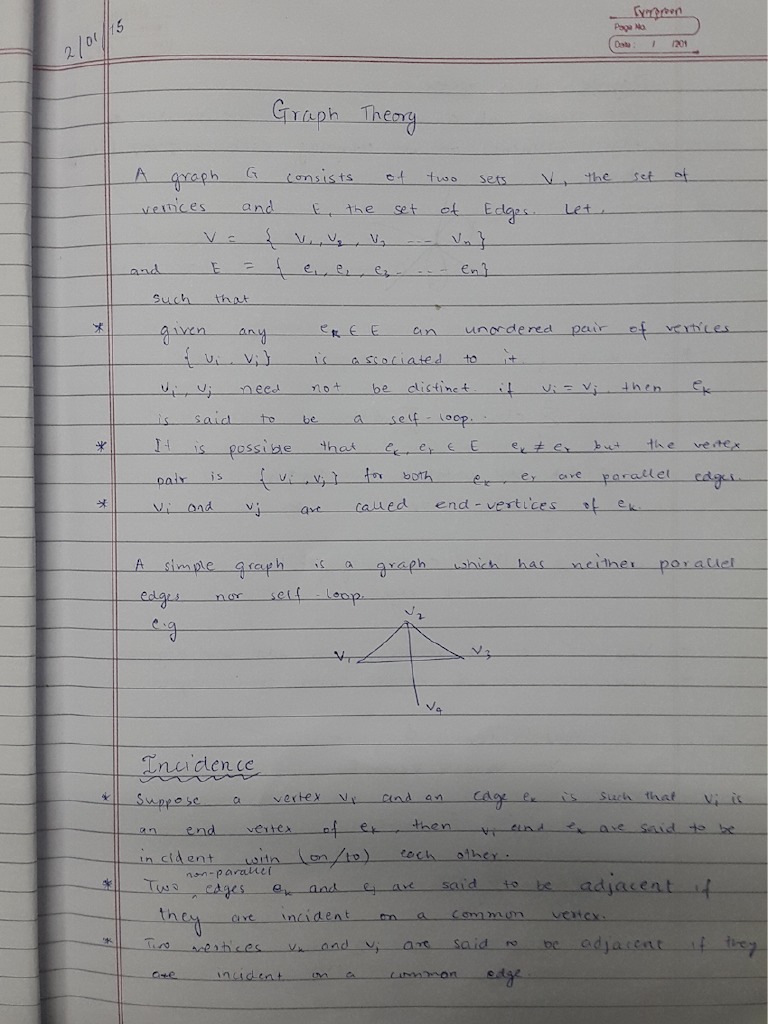 2/01/15
Evergreen
Page No.
Date: / /201
Graph Theory
A graph G consists of two sets V, the set of
vertices and E, the set of Edges. Let,
V = { V1, V2, V3 ---- Vn}
and E = { e1, e2, e3 ---- en}
such that
* given any ek ∈ E an unordered pair of vertices
{ vi, vj} is associated to it
vi, vj need not be distinct. if vi = vj then ek
is said to be a self-loop.
* It is possible that ek, er ∈ E ek ≠ er but the vertex
pair is { vi, vj } for both ek, er are parallel edges.
* vi and vj are called end-vertices of ek.
A simple graph is a graph which has neither parallel
edges nor self-loop.
e.g
V2
V1 V3
V4
Incidence
* Suppose a vertex vi and an edge ek is such that vi is
an end vertex of ek, then vi and ek are said to be
incident with (on/to) each other.
non-parallel
* Two ^ edges ek and ej are said to be adjacent if
they are incident on a common vertex.
* Two vertices vk and vj are said to be adjacent if they
are incident on a common edge.